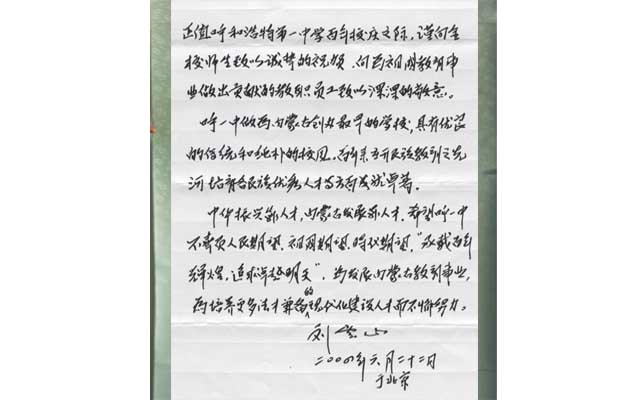 正值呼和浩特第一中学百年校庆之际，谨向全
校师生致以诚挚的祝愿，向为祖国教育事
业做出贡献的教职员工致以深深的敬意。
呼一中做为内蒙古创办最早的学校，具有优良
的传统和纯朴的校园。百年来开民族教育之先
河，培育各民族优秀人才等方面成就卓著。
中华振兴靠人才，内蒙古发展靠人才，希望呼一中
不辜负人民期望、祖国期望、时代期望，“承载百年
辉煌，追求卓越明天”，为发展内蒙古教育事业，
为培养更多德才兼备的现代化建设人才而不懈努力。
刘云山
二〇〇四年六月二十二日
于北京